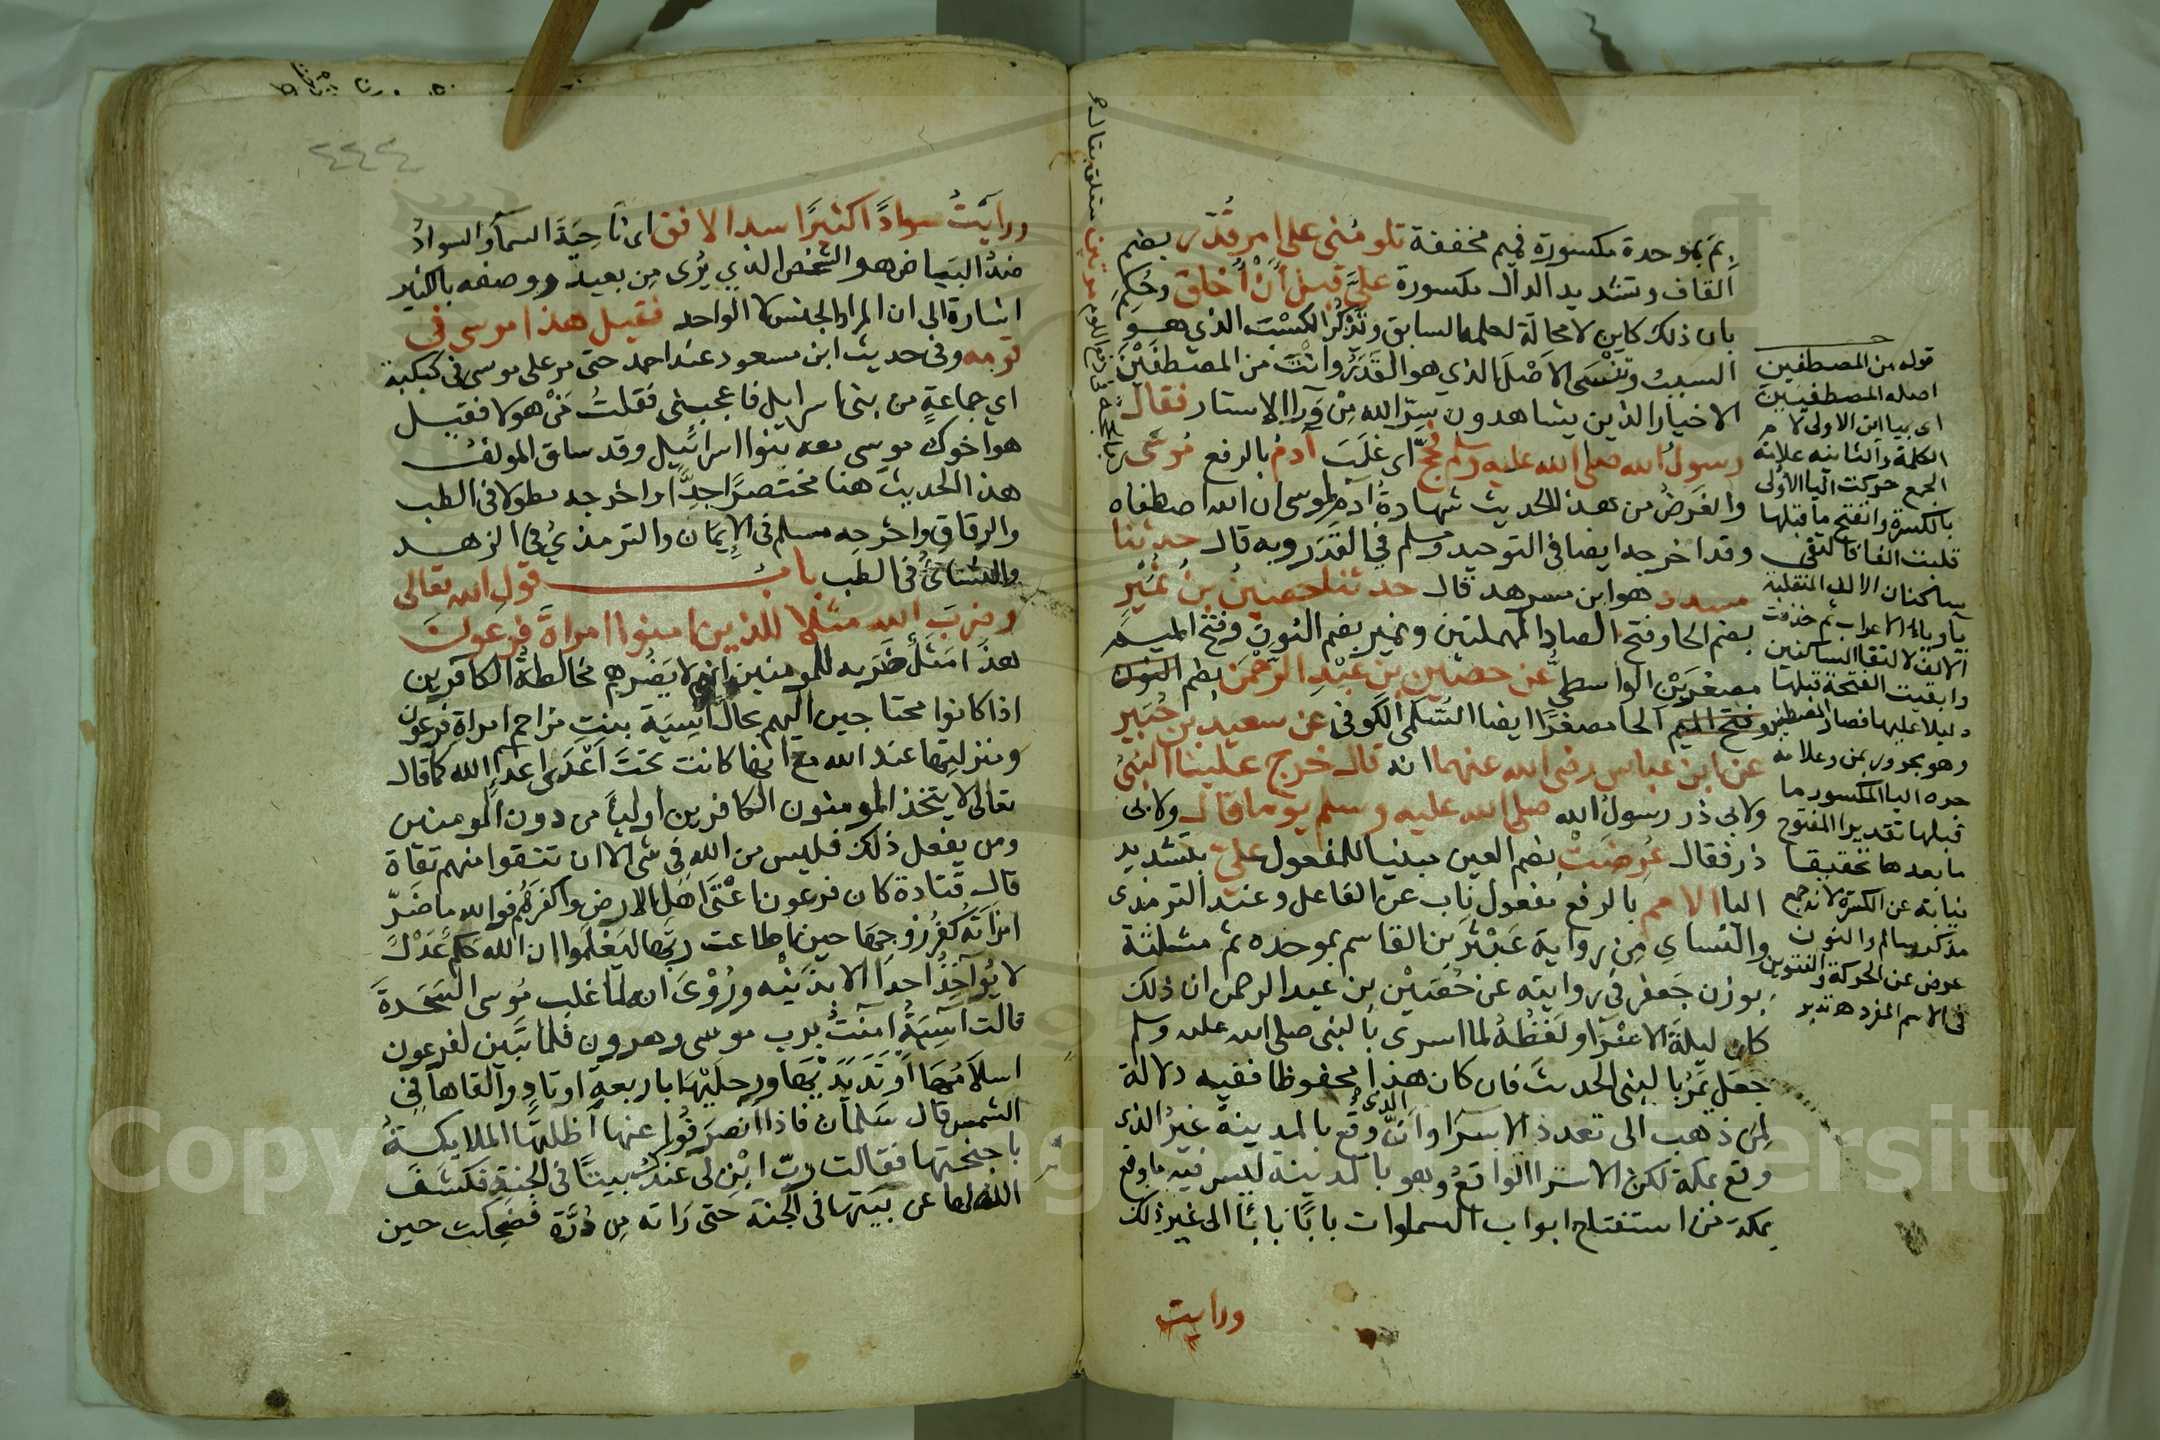 بم بموحدة مكسورة فميم مخففة تلومني على امر قدر بضم
القاف وتشديد الدال مكسورة علي قبل أن أخلق وحكم
بان ذلك كاين لا محالة لعلمه السابق وتذكر الكسب الذي هو
السبب وتنسى الاصل الذي هو القدر وانت من المصطفين
الاخيار الذين يشاهدون سر الله من ورا الاستار فقال
رسول الله صلى الله عليه وسلم فحج اي غلب آدم بالرفع موسى
والغرض من هذا الحديث شهادة آدم لموسى ان الله اصطفاه
وقد اخرجه ايضا في التوحيد ومسلم في القدر وبه قال حدثنا
مسدد هو ابن مسرهد قال حدثنا حصين بن نمير
بضم الحا وفتح الصاد المهملتين ونمير بضم النون وفتح الميم
مصغرين الواسطي عن حصين بن عبد الرحمن بضم النون
وفتح الميم الحا مصغرا ايضا السلمي الكوفي عن سعيد بن جبير
عن ابن عباس رضي الله عنهما انه قال خرج علينا النبي
ولابي ذر رسول الله صلى الله عليه وسلم يوما قال ولابى
ذر فقال عرضت بضم العين مبنيا للمفعول علي بتشديد
اليا الامم بالرفع مفعول ناب عن الفاعل وعند الترمذي
والنساي من رواية عبثر بن القاسم بموحده ثم مثلثة
بوزن جعفر في روايته عن حصين بن عبد الرحمن ان ذلك
كان ليلة الاسرا ولفظه لما اسرى بالنبي صلى الله عليه وسلم
جعل يمر بالنبي الحديث فان كان هذا محفوظا ففيه دلالة
لمن ذهب الى تعدد الاسرا وان الذي وقع بالمدينة غير الذي
وقع بمكة لكن الاسرا الواقع وهو بالمدينة ليس فيه ما وقع
بمكة من استفتاح ابواب السماوات بابا بابا الى غير ذلك
ورايت
قوله من المصطفين
اصله المصطفيين
اى بيا اين الاولى لام
الكلمة والثانيه علامة
الجمع حركت اليا الاولى
بالكسرة وانفتح ما قبلها
قلبت الفا فالتقى
ساكنان الالف المنقلبة
ويا الاعراب ثم حذفت
الالف لالتقا الساكنين
وابقيت الفتحة قبلها
دليلا عليها فصار المصطفين
وهو مجرور بمن وعلامة
جره اليا المكسور ما
قبلها تقديرا المفتوح
ما بعدها تحقيقا
نيابة عن الكسرة لانه جمع
مذكر سالم والنون
عوض عن الحركة والتنوين
في الاسم المفرد ه تدبر
ورايت سوادا كثيرا سد الافق اى ناحية السما والسواد
ضد البياض هو الشخص الذي يرى من بعيد ووصفه بالكثير
اشارة الى ان المراد الجنس لا الواحد فقيل هذا موسى في
قومه وفى حديث ابن مسعود عند احمد حتى مر علي موسى في كبكبة
اي جماعة من بني اسرايل فاعجبني فقلت من هولا فقيل
هو اخوك موسى معه بنوا اسرائيل وقد ساق المولف
هذا الحديث هنا مختصرا جدا واخرجه مطولا في الطب
والرقاق واخرجه مسلم في الإيمان والترمذي في الزهد
والنسائي في الطب باب قول الله تعالى
وضرب الله مثلا للذين امنوا امراة فرعون
هذا مثل ضربه للمومنين انه لا يضرهم مخالطة الكافرين
اذا كانوا محتاجين اليهم بحال آسية بنت مزاحم امراة فرعون
ومنزلتها عند الله مع انها كانت تحت اعدى اعدا الله كما قال
تعالى لا يتخذ المومنون الكافرين اوليا من دون المومنين
ومن يفعل ذلك فليس من الله في شى الا ان تتقوا منهم تقاة
قال قتادة كان فرعون اعتى اهل الارض واكفرهم فوالله ما ضر
امراته كفر زوجها حين اطاعت ربها ليعلموا ان الله حكم عدل
لا يؤاخذ احدا الا بذنبه وروى انه لما غلب موسى السحرة
قالت آسية آمنت برب موسى وهرون فلما تبين لفرعون
اسلامها اوتد يديها ورجليها باربعة اوتاد والقاها في
الشمس قال سلمان فاذا انصرفوا عنها اظلتها الملايكة
باجنحتها فقالت رب ابن لي عندك بيتا في الجنة فكشف
الله لها عن بيتها في الجنة حتى راته من درة فضحكت حين
Copy University